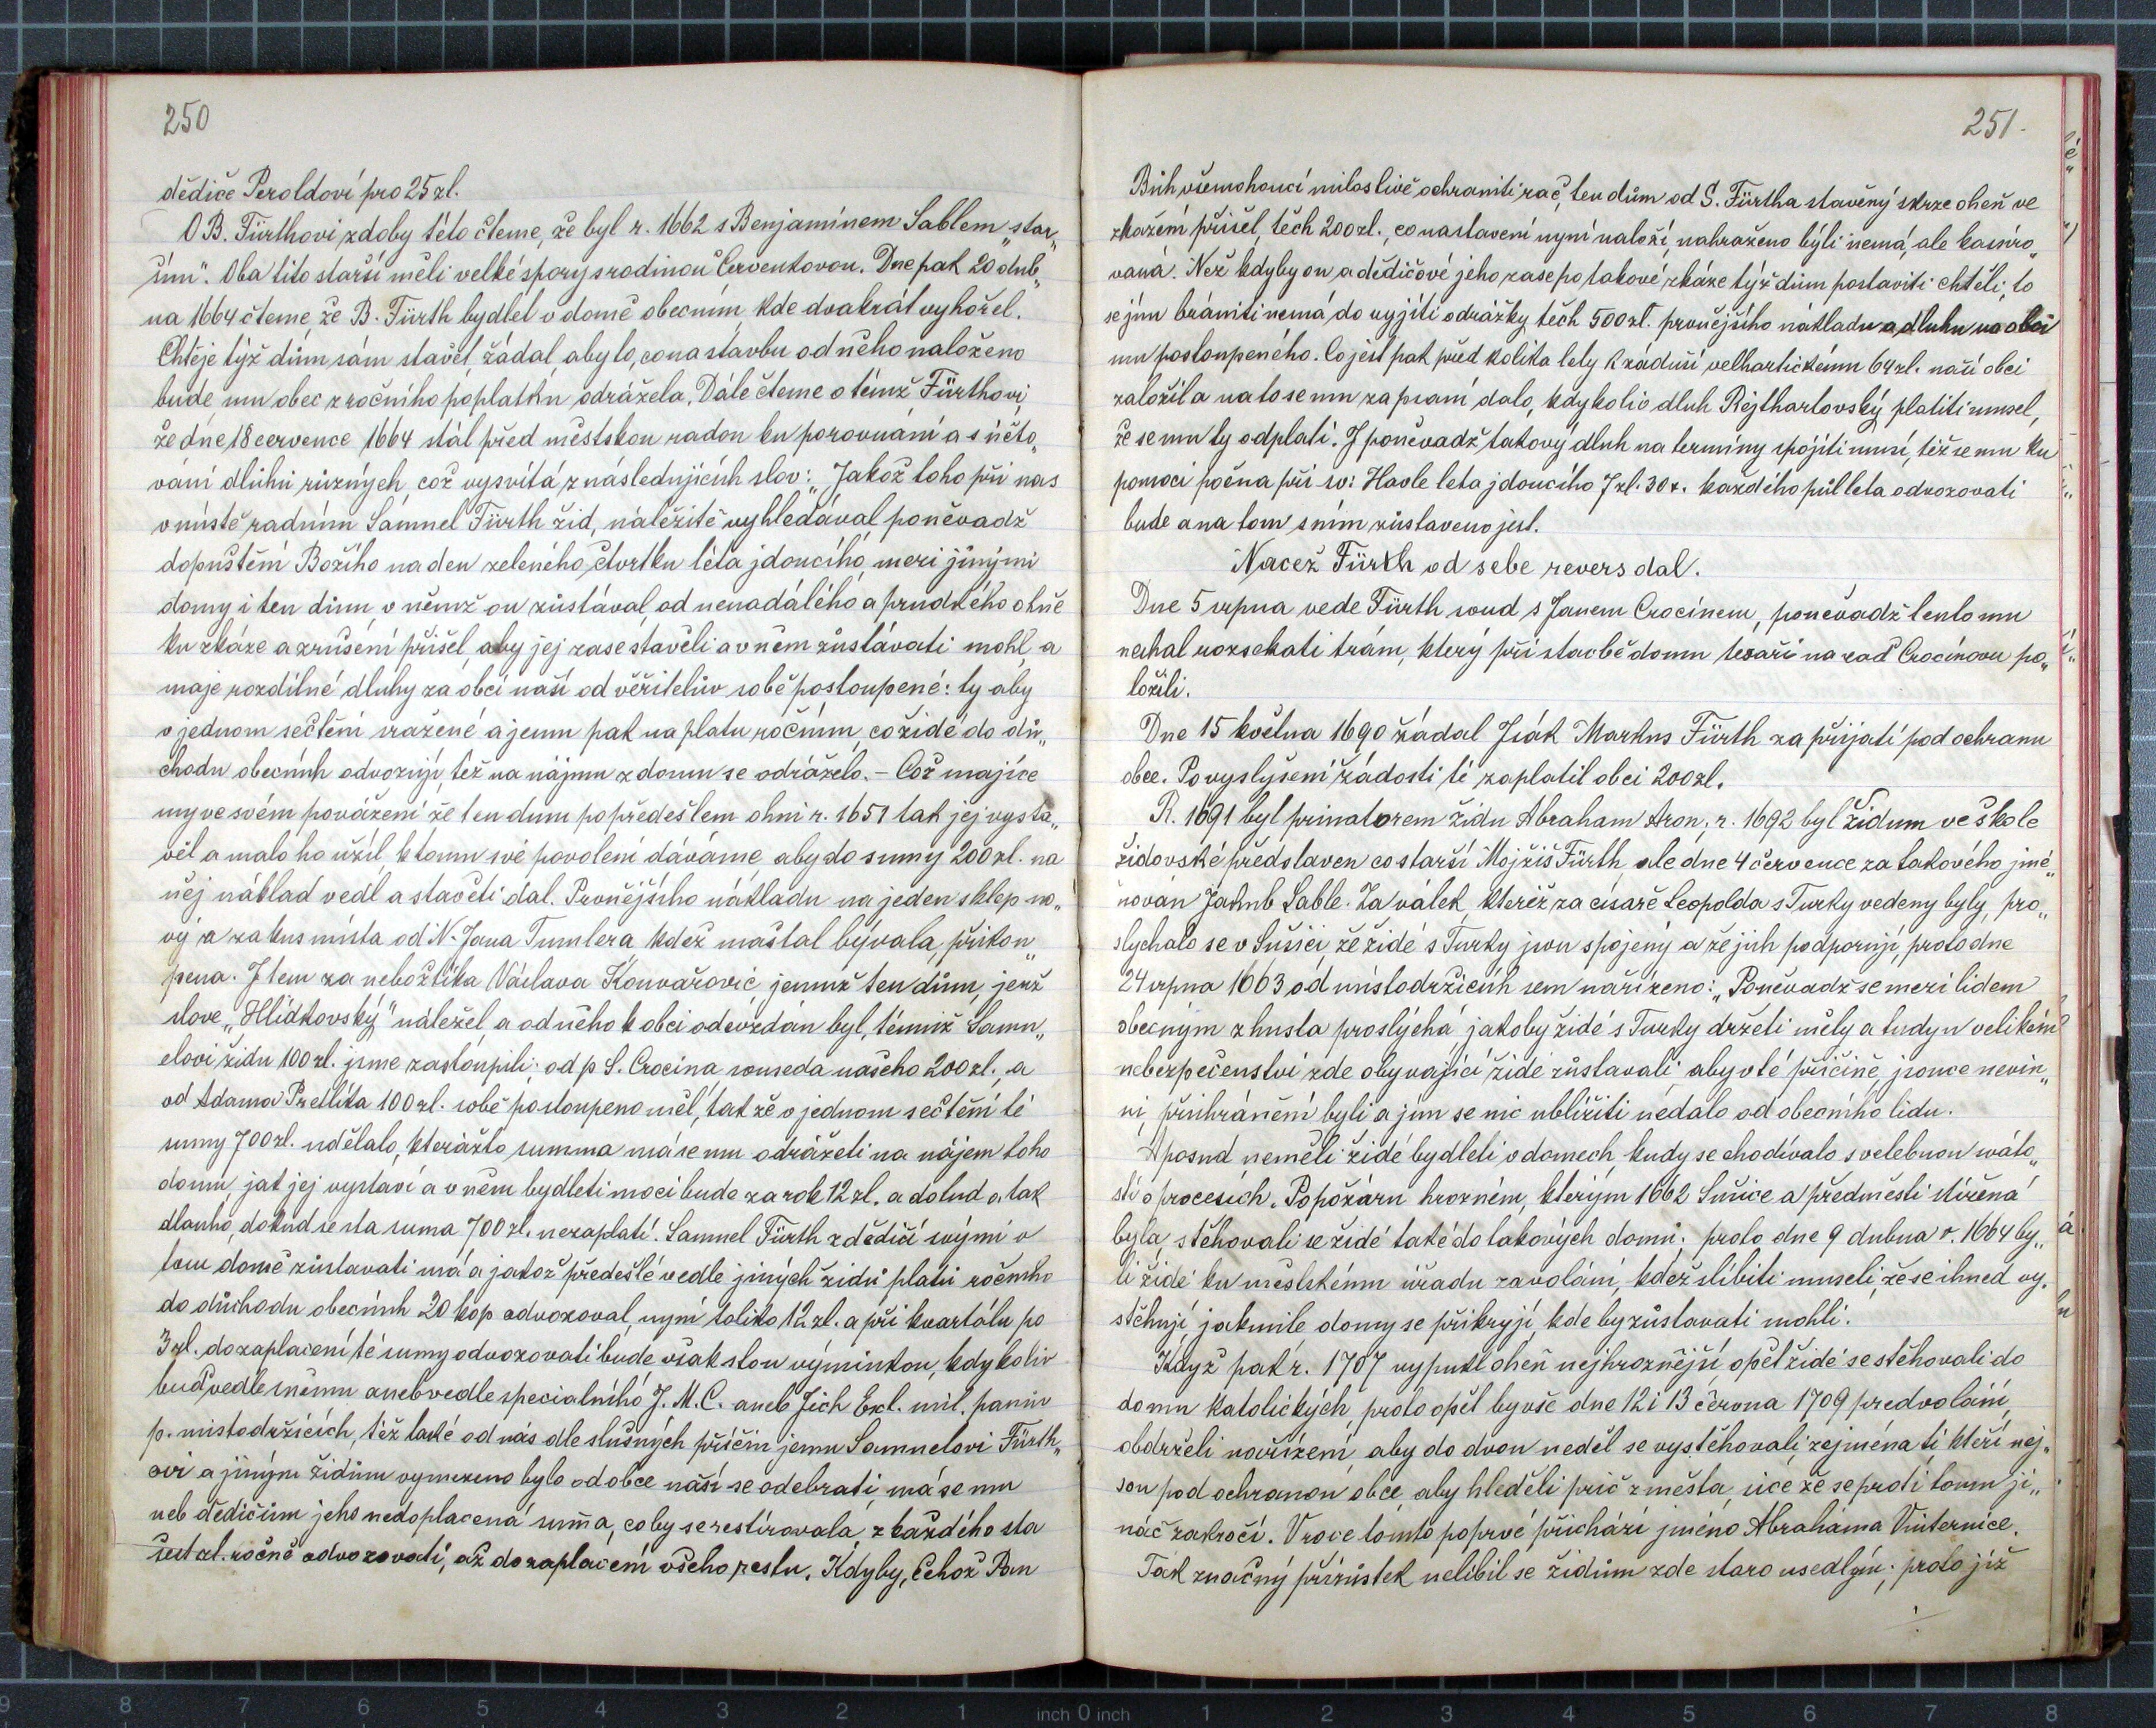 250
dědiče Peroldovi pro 25 zl.
O B. Fürthovi z doby této čteme, že byl r. 1662 s Benjamínem Sablem „star„
ším". Oba tito starší měli velké spory s rodinou Červenkovou. Dne pak 20 dub„
na 1664 čteme, že B. Fürth bydlel v domě obecním, kde dvakrát vyhořel.
Chtěje týž dům sám stavět, žádal, aby to, co na stavbu od něho naloženo
bude, mu obec z ročního poplatku odrážela. Dále čteme o témž Fürthovi,
že dne 18 cervence 1664 stál před městskou radou ku porovnání a s účto„
vání dluhů různých, což vysvítá z následujících slov: „Jakož toho při nas
v místě radním Samuel Fürth žid, náležitě vyhledával, poněvadž
dopuštění Božího na den zeleného čtvrtku léta jdoucího, mezi jinými
domy i ten dům, v němž on zůstával, od nenadálého a prudkého ohně
ku zkáze a zrušení přišel, aby jej zase stavěli a v něm zůstávati mohl, a
maje rozdílné dluhy za obcí naší od věřitelův sobě postoupené: ty aby
v jednom sečtění vražené a jemu pak na platu ročním, co židé do dů„
chodu obecních odvozují, též na nájmu z domu se odráželo. – Což majíce
my ve svém povážení že ten dum po předešlem ohni r. 1651 tak jej vysta„
věl a malo ho užíl k tomu své povolení dáváme, aby do sumy 200 zl. na
něj náklad vedl a stavěti dal. Prvnějšího nákladu na jeden sklep no„
vý a za kus místa od N. Jana Tumlera, kdež maštal bývala, přikou„
pena. Item za nebožtíka Václava Kouvařovic, jemuž ten dům, jenž
slove „Hlídkovský" náležel a od něho k obci odevzdán byl, témuž Samu„
elovi židu 100 zl. jsme zastoupili; od p S. Crocina souseda našeho 200 zl., a
od Adama Pretlíka 100 zl. sobě postoupeno měl, tak že v jednom sečtění té
sumy 700 zl. udělalo, kterážto summa má se mu odrážeti na nájem toho
domu, jak jej vystaví a v něm bydleti moci bude za rok 12 zl. a dotud a tak
dlouho, dokud se sta suma 700 zl. nezaplatí. Samuel Fürth z dědičí svými v
tom domě zůstavati má a jakož předešlé vedle jiných židů platů ročního
do důchodu obecních 20 kop odvozoval, nyní toliko 12 zl. a při kvartálu po
3 zl. do zaplacení té sumy odvozovati bude však s tou výminkou, kdykoliv
buď vedle sněmu aneb vedle specialního J. M. C. aneb Jich Excl. mil. panův
p. mistodržících, též také od nás dle slušných příčin jemu Samuelovi Fürth„
ovi a jiným židům vymezeno bylo od obce naší se odebrati, má se mu
neb dědičům jeho nedoplacená suma, co by se restírovala, z každého sta
šest zl. ročně odvozovati, až do zaplacení všeho restu. Kdyby, čehož Pan
251.
Bůh všemohoucí milostivě ochraniti rač, ten dům od S. Fürtha stavěný skrze oheň ve
zkažení přišel, těch 200 zl., co na stavení nyní naloží, nahraženo býti nemá, ale kassíro„
vaná. Než kdyby on a dědičové jeho zase po takové zkáze týž dům postaviti chtěli, to
se jim brániti nemá, do vyjití odrážky těch 500 zl. prvnějšího nákladu a dluhu na obci
mu postoupeného. Co jest pak před kolika lety k záduší velhartickému 64 zl. naší obci
založil a na to se mu za psaní dalo, kdykoliv dluh Rejtharlovský platiti musel,
že se mu ty odplatí. I poněvadž takový dluh na termíny spójiti musí, též se mu ku
pomoci počna při sv: Havle leta jdoucího 7 zl. 30 x. každého půl leta odvozovati
bude a na tom s ním zůstaveno jest.
Nacež Fürth od sebe revers dal.
Dne 5 srpna vede Fürth soud s Janem Crocínem, poněvadž tento mu
nechal rozsekati trám, který při stavbě domu tesaři na zaď Crocínovu po„
ložili.
Dne 15 května 1690 žádal Izák Markus Fürth za přijatí pod ochranu
obce. Po vyslyšení žádosti té zaplatil obci 200 zl.
R. 1691 byl primatorem židu Abraham Aron, r. 1692 byl židum ve škole
židovské představen co starší Mojžiš Fürth, ale dne 4 července za takového jme„
nován Jakub Sable. Za válek, kteréž za císaře Leopolda s Turky vedeny byly, pro„
slychalo se v Sušici, že židé s Turky jsou spojený a že jich podporují, proto dne
24 srpna 1663 od místodržících sem nařízeno: „Poněvadž se mezi lidem
obecným z husta proslýchá, jakoby židé s Turky držeti měly a tudy u velikém
nebezpečenství zde obyvající židé zůstavali, aby v té příčině, jsouce nevin„
ni, přichráněni byli a jim se nic ubližiti nedalo od obecního lidu.
A posud neměli židé bydleti v domech, kudy se chodívalo s velebnou sváto„
stí o procesích. Po požáru hrozném, kterým 1662 Sušice a předměstí stížena
byla, stěhovali se židé také do takových domů; proto dne 9 dubna r. 1664 by„
li židé ku městskému úřadu zavoláni, kdež slíbiti museli, že se ihned vy„
stěhují, jakmile domy se přikryjí, kde by zůstavati mohli.
Když pak r. 1707 vypukl oheň nejhroznější, opět židé se stěhovali do
domu katolických, proto opět byvše dne 12 i 13 června 1709 predvoláni,
obdrželi nařízení, aby do dvou neděl se vystěhovali, zejména ti, kteří nej„
sou pod ochranou obce, aby hleděli prič z města, sice že se proti tomu ji„
náč zakročí. V roce tomto poprvé přichází jméno Abraháma Vinternice.
Tak značný přírůstek nelíbil se židům zde staro usedlým; proto již